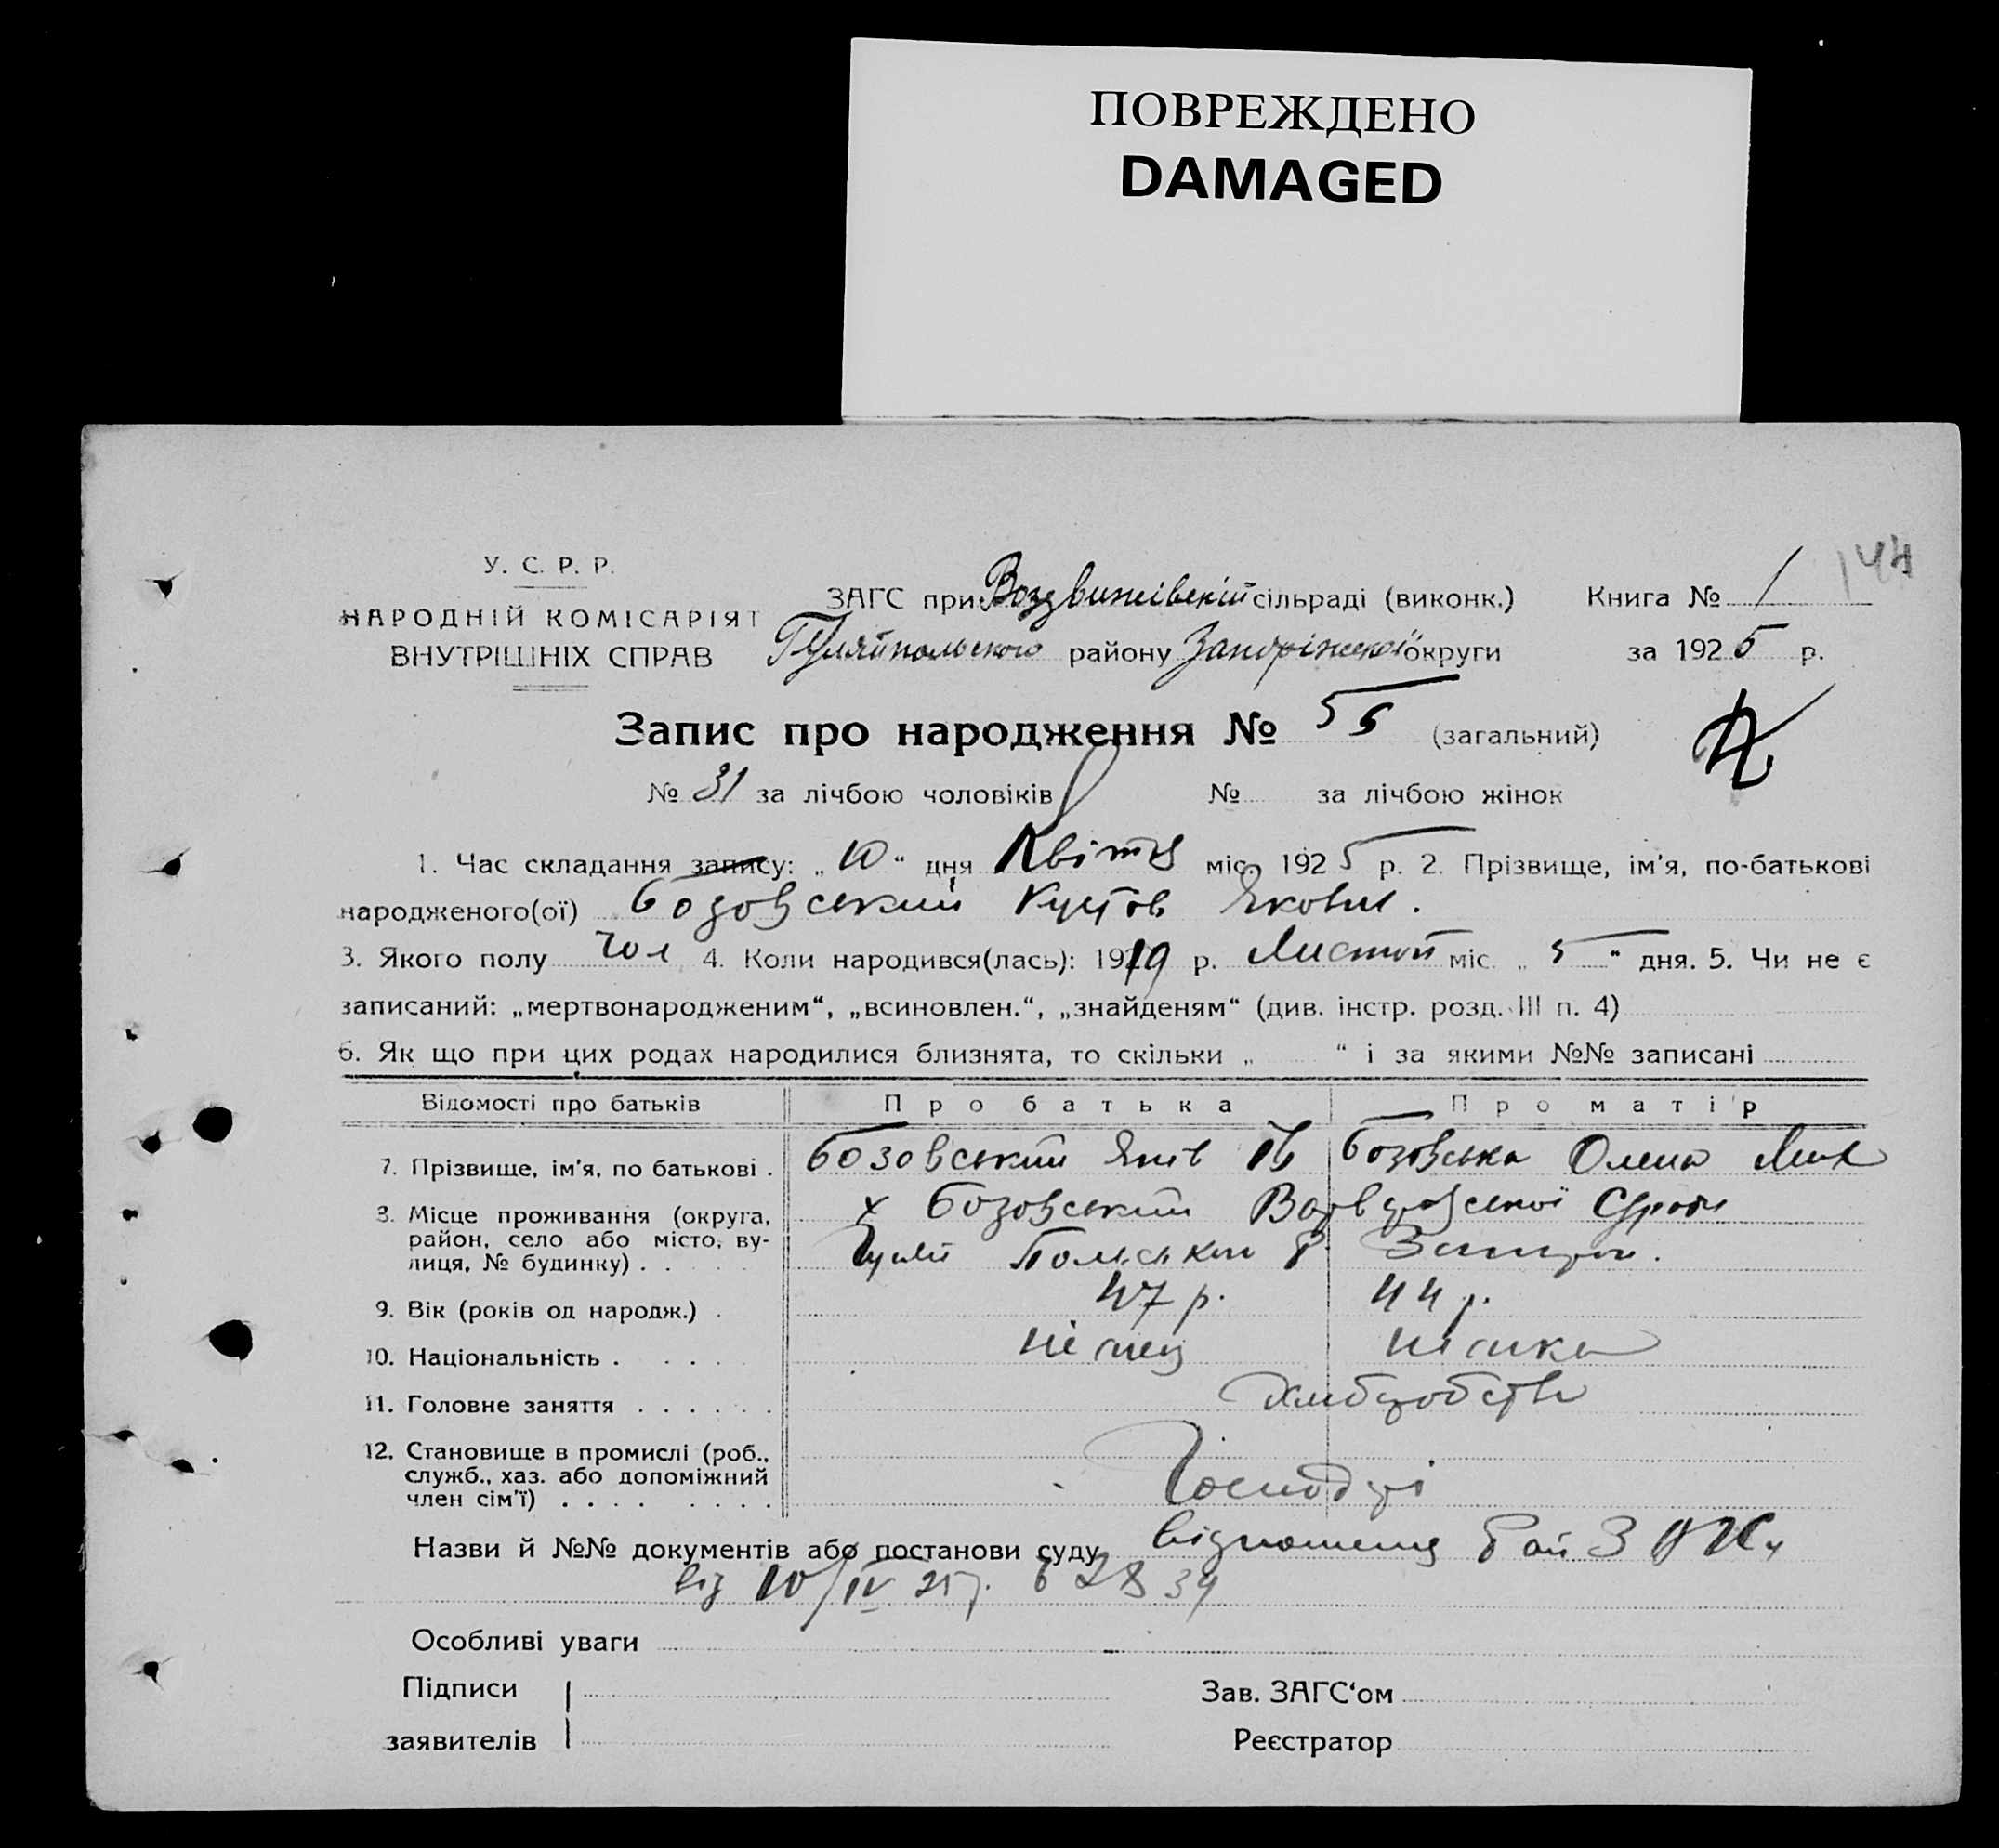 ПОВРЕЖДЕНО
DAMAGED
144
У. С. Р. Р.
НАРОДНІЙ КОМІСАРІЯТ
ВНУТРІШНІХ СПРАВ
ЗАГС при Воздвижівській сільраді (виконк.) Книга № 1
Гуляйпольского району Запоріжської округи за 1925 р.
Запис про народження № 55 (загальний)
№ 31 за лічбою чоловіків № за лічбою жінок
1. Час складання запису: „ 10 “ дня Квітня міс. 1925 р. 2. Прізвище, ім'я, по-батькові
народженого(ої) Бозовський Густов Якович.
3. Якого полу чол 4. Коли народився(лась): 1919 р. Листоп міс. „ 5 “ дня. 5. Чи не є
записаний: „мертвонародженим“, „всиновлен.“, „знайденям“ (див. інстр. розд. III п. 4)
6. Як що при цих родах народилися близнята, то скільки „ “ і за якими №№ записані
Відомості про батьків Про батька Про матір
7. Прізвище, ім'я, по батькові . Бозовський Яків Ів Бозовська Олена Мих
8. Місце проживання (округа, район, село або місто, вулиця, № будинку) . . х Бозовський
Гуляй Польськ Р.
9. Вік (років од народж.) . 47 р. 44 р.
10. Національність . . . . німец німка
11. Головне заняття . . . . . . Хліборобств
12. Становище в промислі (роб., служб., хаз. або допоміжний член сім'ї) . . . . . . . . Господарі
Назви й №№ документів або постанови суду відношення Рай
від 10/IV 25 р. 2834
Особливі уваги
Підписи Зав. ЗАГС‘ом
заявителів Реєстратор